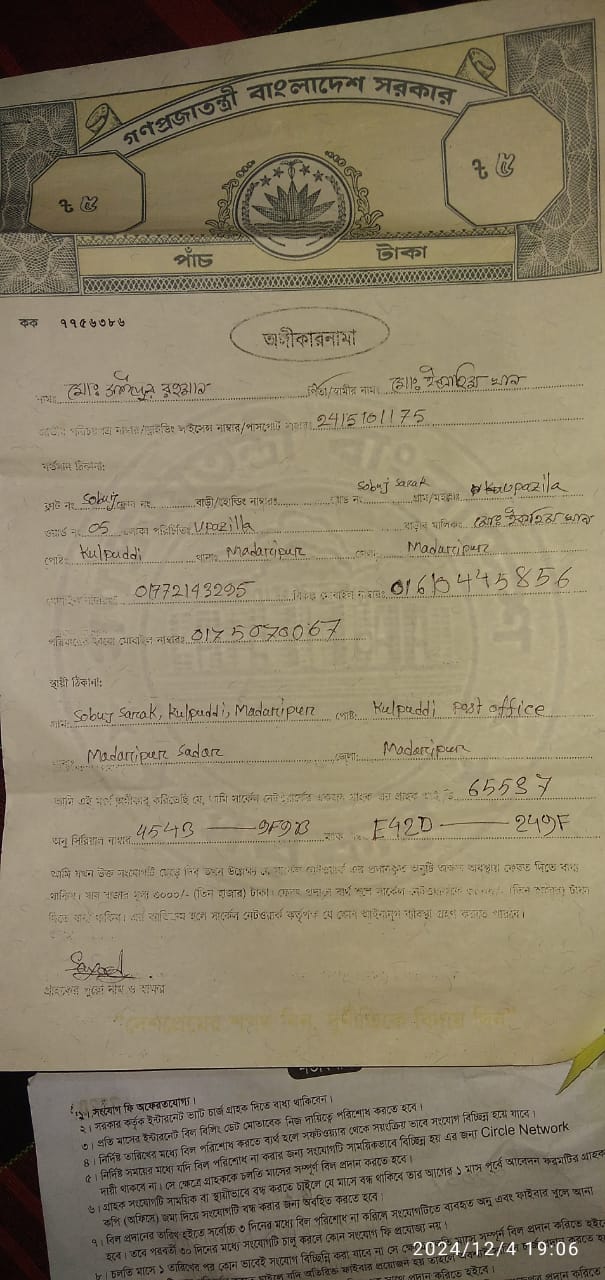 গণপ্রজাতন্ত্রী বাংলাদেশ সরকার
৳ ৫
৳ ৫
পাঁচ টাকা
কক ৭৭৫৬৩৮৬
অঙ্গীকারনামা
নামঃ মোঃ রহমান পিতা/স্বামীর নামঃ মোঃ খান
জাতীয় পরিচয়পত্র নাম্বার/ড্রাইভিং লাইসেন্স নাম্বার/পাসপোর্ট নাম্বারঃ 2415101175
বর্তমান ঠিকানা:
ফ্লাট নং sobuj ফ্লোর নং বাড়ী/হোল্ডিং নাম্বারঃ রোড নং sobuj sarak গ্রাম/মহল্লাঃ upazilla
ওয়ার্ড নং 05 এলাকা পরিচিতিঃ upazilla বাড়ীর মালিকঃ মোঃ খান
পোষ্টঃ Kulpuddi থানাঃ Madaripur জেলাঃ Madaripur
01772143295 বিকল্প মোবাইল নাম্বারঃ 445856
মোবাইল নাম্বারঃ
স্থায়ী ঠিকানা:
গ্রামঃ Sobuj Sarak, Kulpuddi, Madaripur পোষ্ট: Kulpuddi post office
থানাঃ Madaripur Sadar জেলা: Madaripur
আমি এই মর্মে অঙ্গীকার করিতেছি যে, আমি সার্কেল নেটওয়ার্কের একজন গ্রাহক যার গ্রাহক আই ডি 65537
অনু সিরিয়াল নাম্বার 454B — 9F9B ম্যাক E42D — 249F
আমি যখন উক্ত সংযোগটি ছেড়ে দিব তখন সার্কেল নেটওয়ার্ক এর প্রদানকৃত অনুটি অক্ষত অবস্থায় ফেরত দিতে বাধ্য
থাকিব। যার বাজার মূল্য ৩০০০/- (তিন হাজার) টাকা। ফেরত প্রদানে ব্যর্থ হলে সার্কেল নেটওয়ার্ককে ৩০০০/- (তিন হাজার) টাকা
দিতে বাধ্য থাকিব। এর ব্যতিক্রম হলে সার্কেল নেটওয়ার্ক কর্তৃপক্ষ যে কোন আইনানুগ ব্যবস্থা গ্রহণ করতে পারবে।
গ্রাহকের পুরো নাম ও স্বাক্ষর
"দেশপ্রেমের শপথ নিন, দুর্নীতিকে বিদায় দিন"
১। সংযোগ ফি অফেরতযোগ্য।
২। সরকার কর্তৃক ইন্টারনেট ভ্যাট চার্জ গ্রাহক দিতে বাধ্য থাকিবেন।
৩। প্রতি মাসের ইন্টারনেট বিল বিলিং ডেট মোতাবেক নিজ দায়িত্বে পরিশোধ করতে হবে।
৪। নির্দিষ্ট তারিখের মধ্যে বিল পরিশোধ করতে ব্যর্থ হলে সফটওয়্যার থেকে সয়ংক্রিয় ভাবে সংযোগ বিচ্ছিন্ন হয়ে যাবে।
৫। নির্দিষ্ট সময়ের মধ্যে যদি বিল পরিশোধ না করার জন্য সংযোগটি সাময়িকভাবে বিচ্ছিন্ন হয় এর জন্য Circle Network
দায়ী থাকবে না। সে ক্ষেত্রে গ্রাহককে চলতি মাসের সম্পূর্ণ বিল প্রদান করতে হবে।
৬। গ্রাহক সংযোগটি সাময়িক বা স্থায়ীভাবে বন্ধ করতে চাইলে যে মাসে বন্ধ থাকিবে তার আগের ১ মাস পূর্বে আবেদন ফরমটির গ্রাহক
কপি (অফিসে) জমা দিয়ে সংযোগটি বন্ধ করার জন্য অবহিত করতে হবে।
৭। বিল প্রদানের তারিখ হইতে সর্বোচ্চ ৩ দিনের মধ্যে বিল পরিশোধ না করিলে সংযোগটিতে ব্যবহৃত অনু এবং ফাইবার খুলে আনা
হবে। তবে পরবর্তী ৩০ দিনের মধ্যে সংযোগটি চালু করলে কোন সংযোগ ফি প্রযোজ্য নয়।
৮। চলতি মাসে ১ তারিখের পর কোন ভাবেই সংযোগ বিচ্ছিন্ন করা যাবে না সে ক্ষেত্রে সম্পূর্ণ বিল প্রদান করতে
2024/12/4 19:06